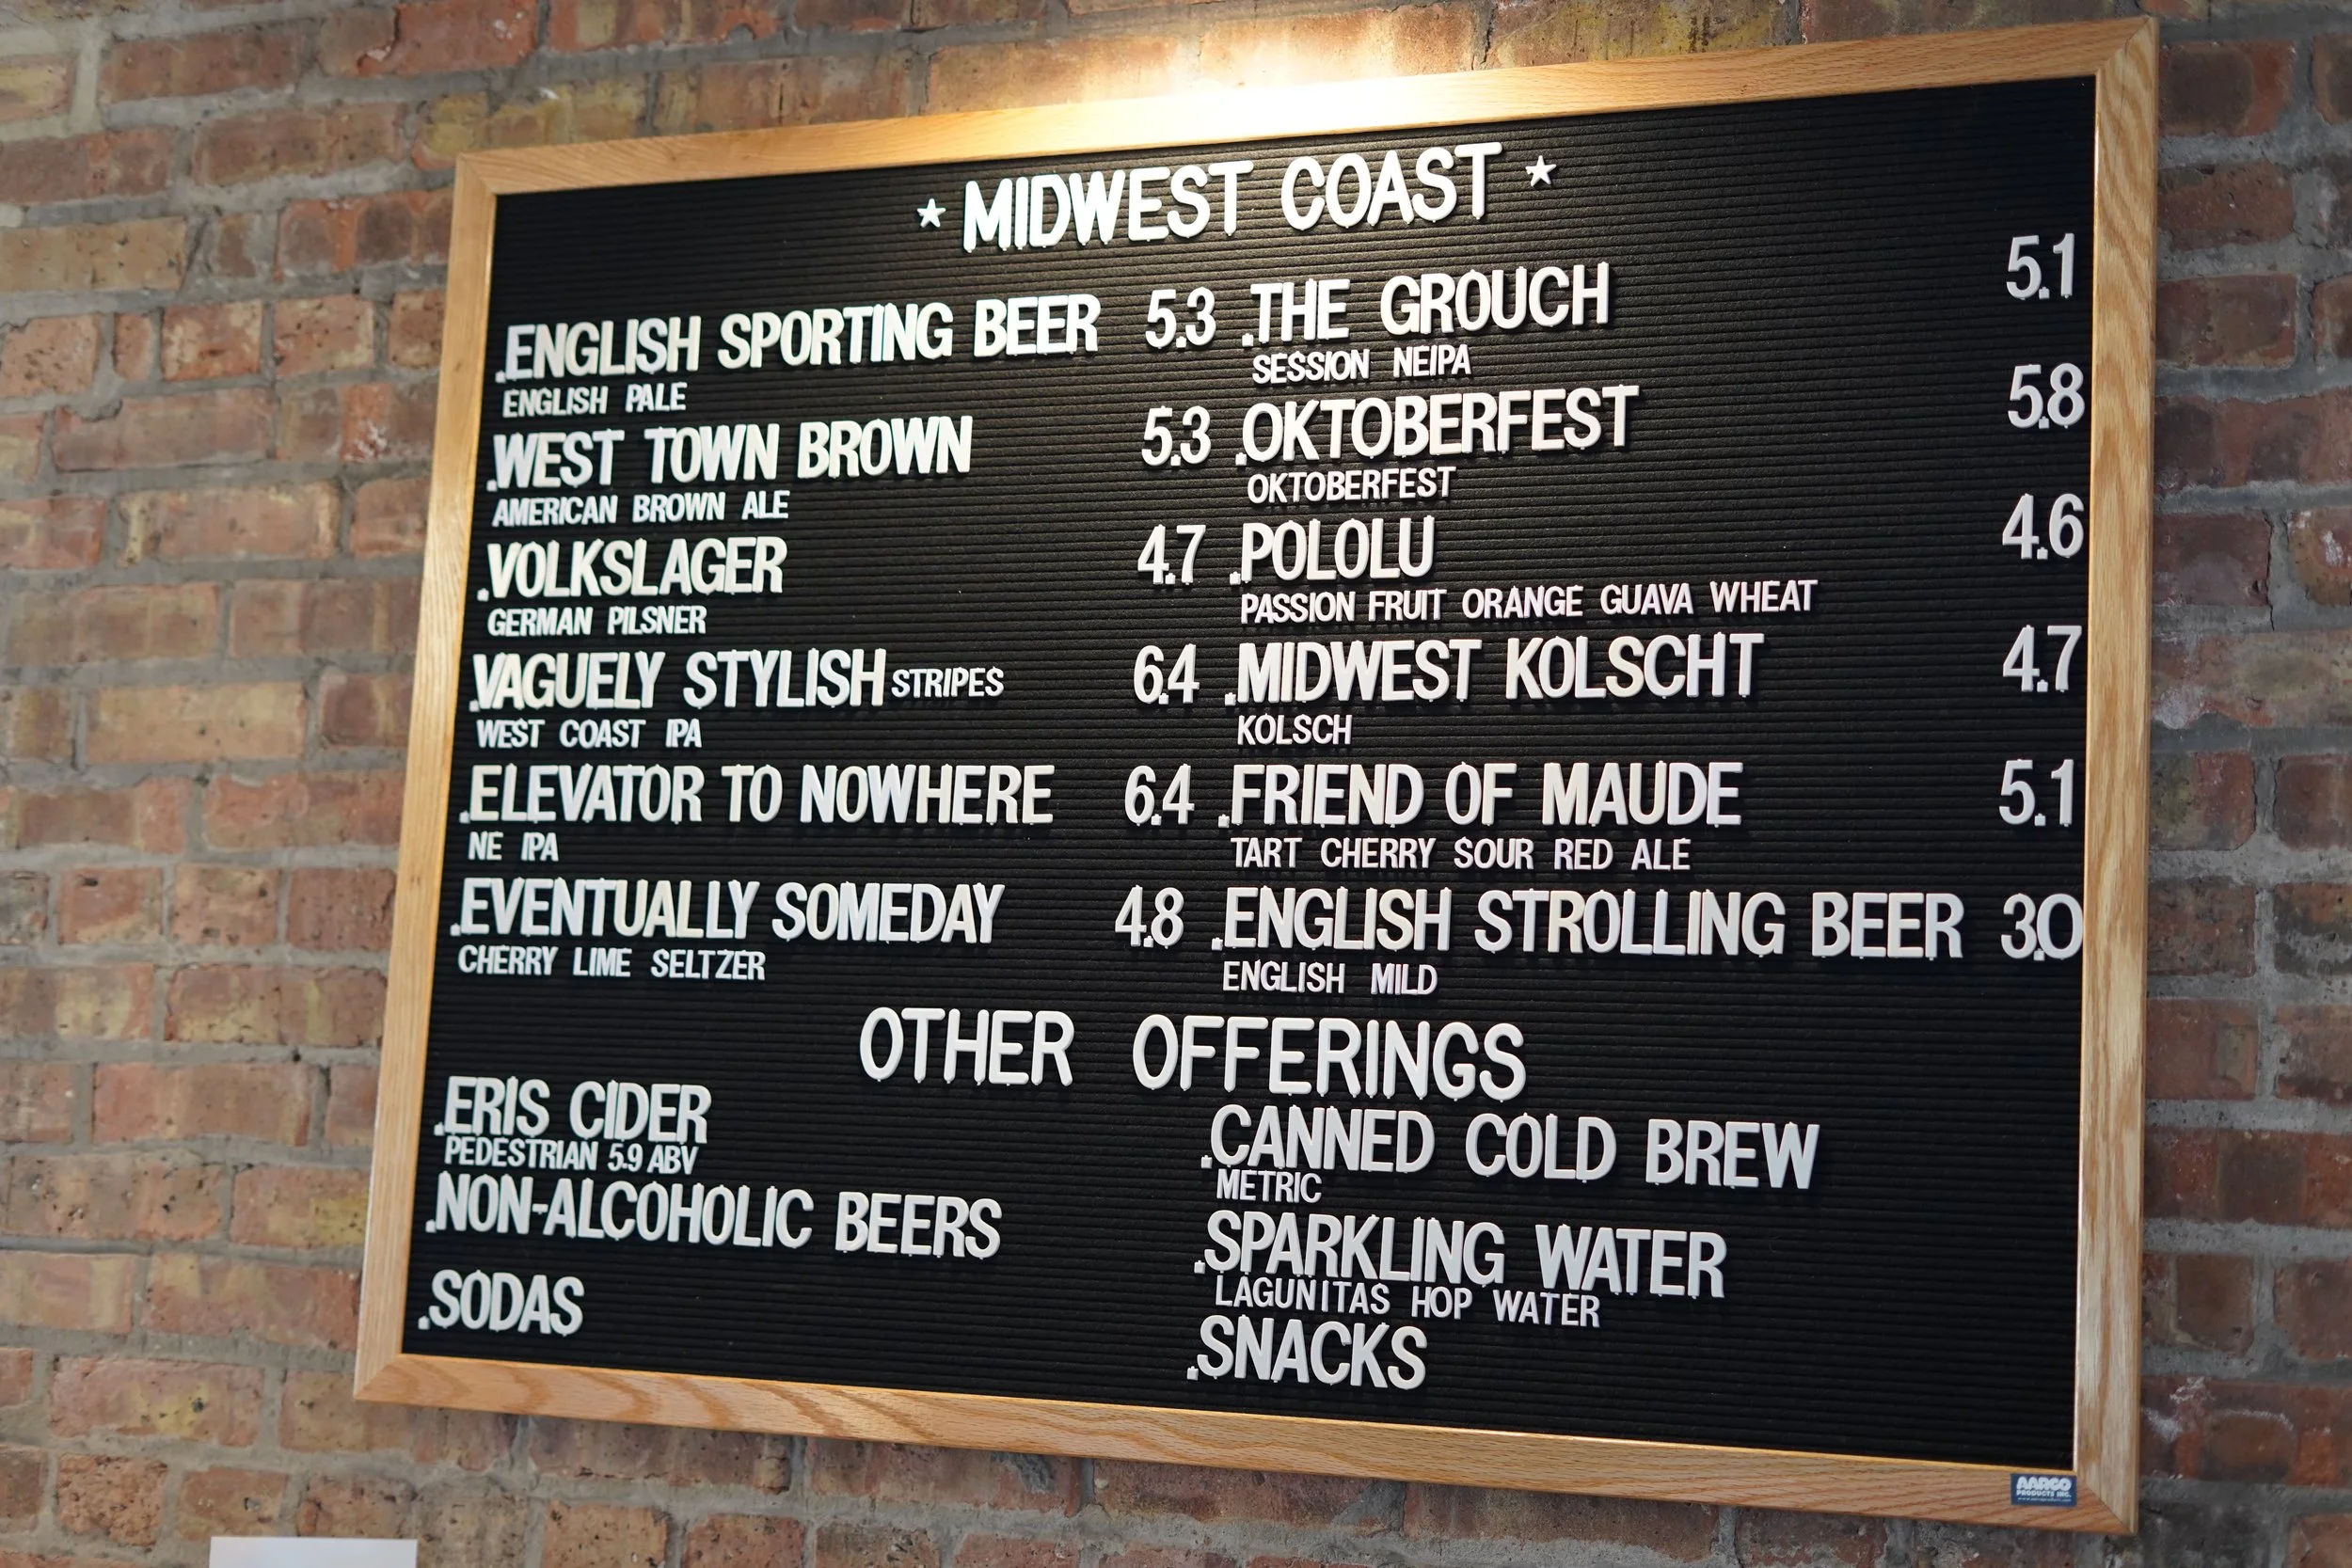 ★ MIDWEST COAST ★
.ENGLISH SPORTING BEER 5.3
ENGLISH PALE
.WEST TOWN BROWN 5.3
AMERICAN BROWN ALE
.VOLKSLAGER 4.7
GERMAN PILSNER
.VAGUELY STYLISH STRIPES 6.4
WEST COAST IPA
.ELEVATOR TO NOWHERE 6.4
NE IPA
.EVENTUALLY SOMEDAY 4.8
CHERRY LIME SELTZER
.THE GROUCH 5.1
SESSION NEIPA
.OKTOBERFEST 5.8
OKTOBERFEST
.POLOLU 4.6
PASSION FRUIT ORANGE GUAVA WHEAT
.MIDWEST KOLSCHT 4.7
KOLSCH
.FRIEND OF MAUDE 5.1
TART CHERRY SOUR RED ALE
.ENGLISH STROLLING BEER 3.0
ENGLISH MILD
OTHER OFFERINGS
.ERIS CIDER
PEDESTRIAN 5.9 ABV
.NON-ALCOHOLIC BEERS
.SODAS
.CANNED COLD BREW
METRIC
.SPARKLING WATER
LAGUNITAS HOP WATER
.SNACKS
AARCO
PRODUCTS INC.